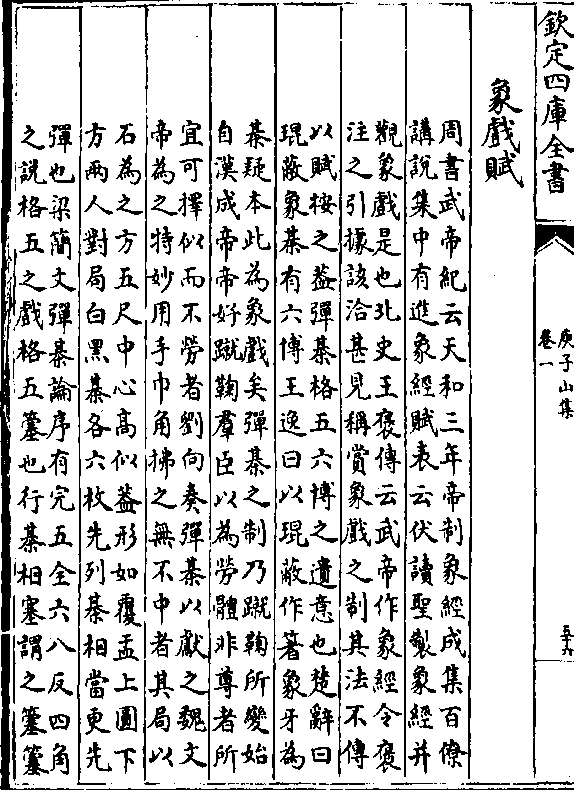 欽定四庫全書
庾子山集
卷一
五十九
象戲賦
周書武帝紀云天和三年帝制象經成集百僚
講說集中有進象經賦表云伏讀聖製象經并
觀象戲是也北史王褒傳云武帝作象經令褒
注之引據該洽甚見稱賞象戲之制其法不傳
以賦按之葢彈棊格五六博之遺意也楚辭曰
琨蔽象棊有六博王逸曰以琨蔽作箸象牙為
棊疑本此為象戲矣彈棊之制乃蹴鞠所變始
自漢成帝帝好蹴鞠羣臣以為勞體非尊者所
宜可擇似而不勞者劉向奏彈棊以獻之魏文
帝為之特妙用手巾角拂之無不中者其局以
石為之方五尺中心高似葢形如覆盂上圓下
方兩人對局白黑棊各六枚先列棊相當更先
彈也梁簡文彈棊論序有完五全六八反四角
之說格五之戲格五簺也行棊相塞謂之簺簺